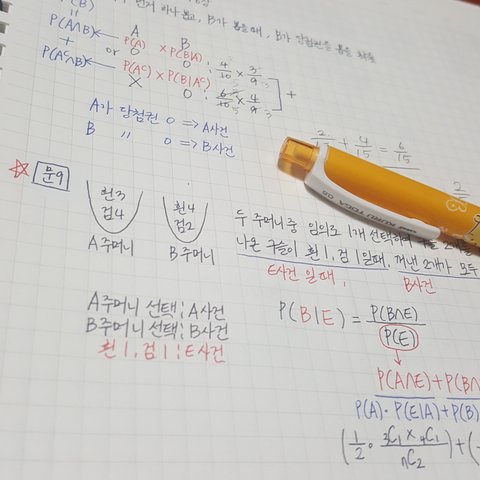 먼저 하나 뽑고, B가 뽑을때, B가 당첨권을 뽑을 확률
P(B)
=
P(A∩B) ← P(A) × P(B|A) : 4/10 × 3/9
A B
+ or O O
P(Aᶜ∩B) ← P(Aᶜ) × P(B|Aᶜ)
X O : 6/10 × 4/9
+
A가 당첨권 O => A사건
B 〃 O => B사건
2/ + 4/15 = 6/15
2/
☆ 문9
흰3 흰4
검4 검2
A주머니 B주머니
두 주머니 중 임의로 1개 선택하여
나온 구슬이 흰1, 검1일때, 꺼낸 2개가 모두
E사건 일때, B사건
A주머니 선택 : A사건
B주머니 선택 : B사건
흰1, 검1 : E사건
P(B|E) = P(B∩E) / P(E)
↓
P(A∩E) + P(B∩
P(A)・P(E|A) + P(B)
(1/2 · ₃C₁ × ₄C₁ / ₙC₂) + (